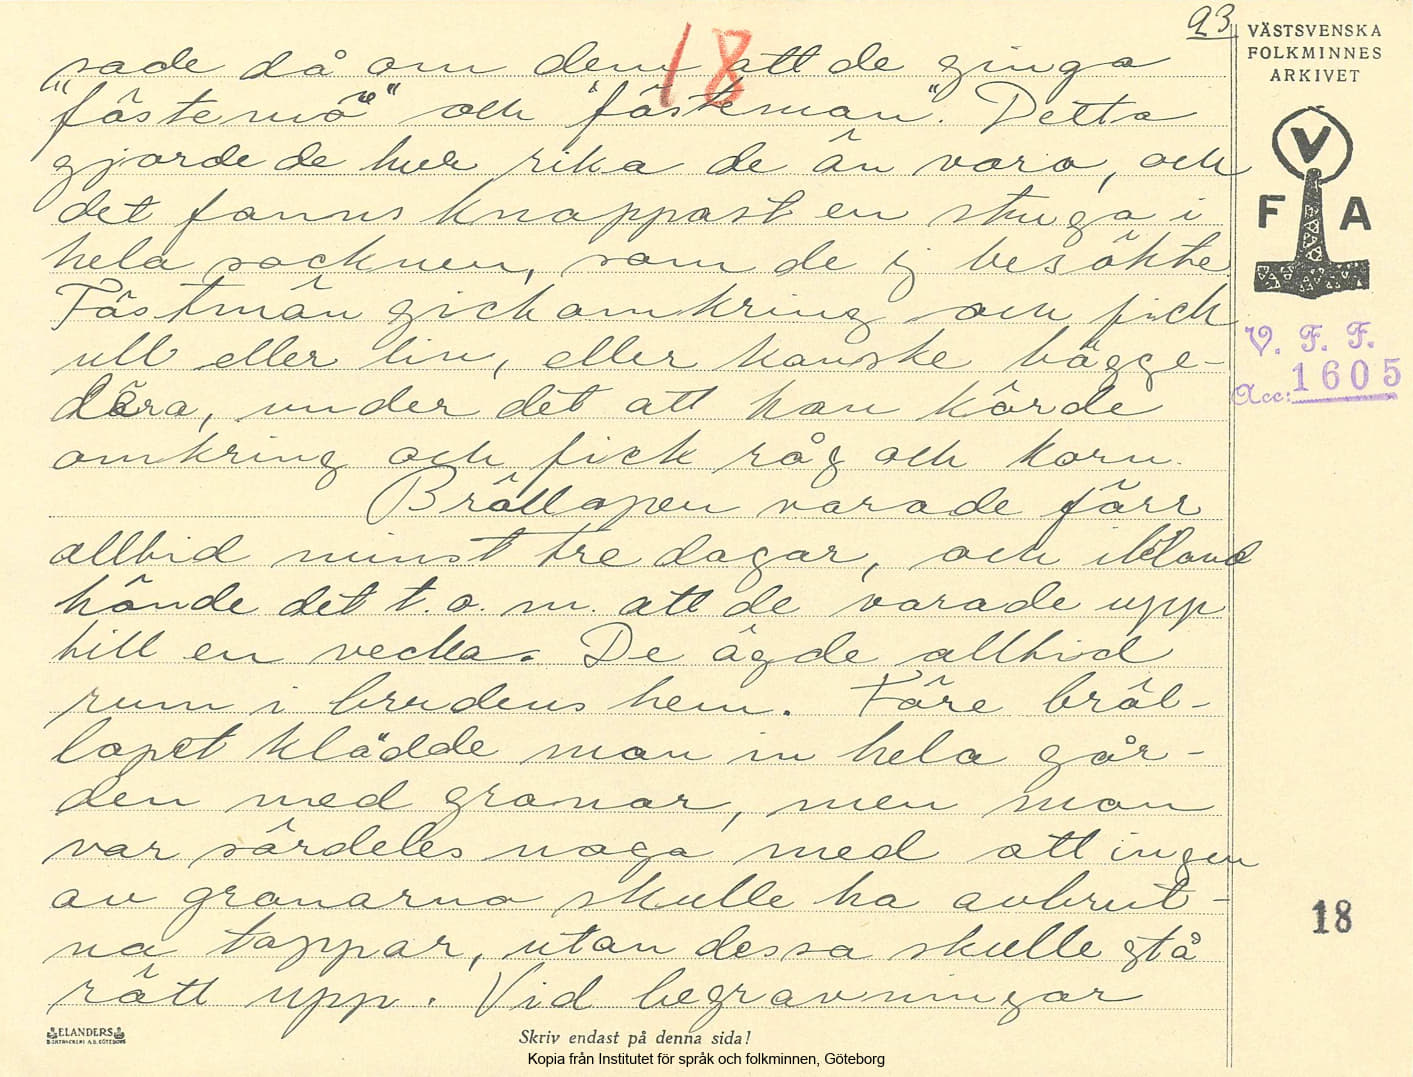 93
VÄSTSVENSKA
FOLKMINNES
ARKIVET
18
sade då om dem att de gingo
"fästemö" och "fästeman". Detta
gjorde de hur rika de än voro, och
det fanns knappast en stuga i
hela socknen, som de ej besökte.
Fästmän gick omkring och fick
ull eller lin, eller kanske bägge-
dära, under det att han körde
omkring och fick råg och korn.
Bröllopen varade förr
alltid minst tre dagar, och ibland
hände det t.o.m. att de varade upp
till en vecka. De ägde alltid
rum i brudens hem. Före bröl-
lopet klädde man in hela går-
den med granar, men man
var särdeles noga med att ingen
av granarna skulle ha avbrut-
na toppar, utan dessa skulle stå
rätt upp. Vid begravningar
V
F A
V. F. F.
Acc: 1605
18
ELANDERS
Skriv endast på denna sida!
Kopia från Institutet för språk och folkminnen, Göteborg